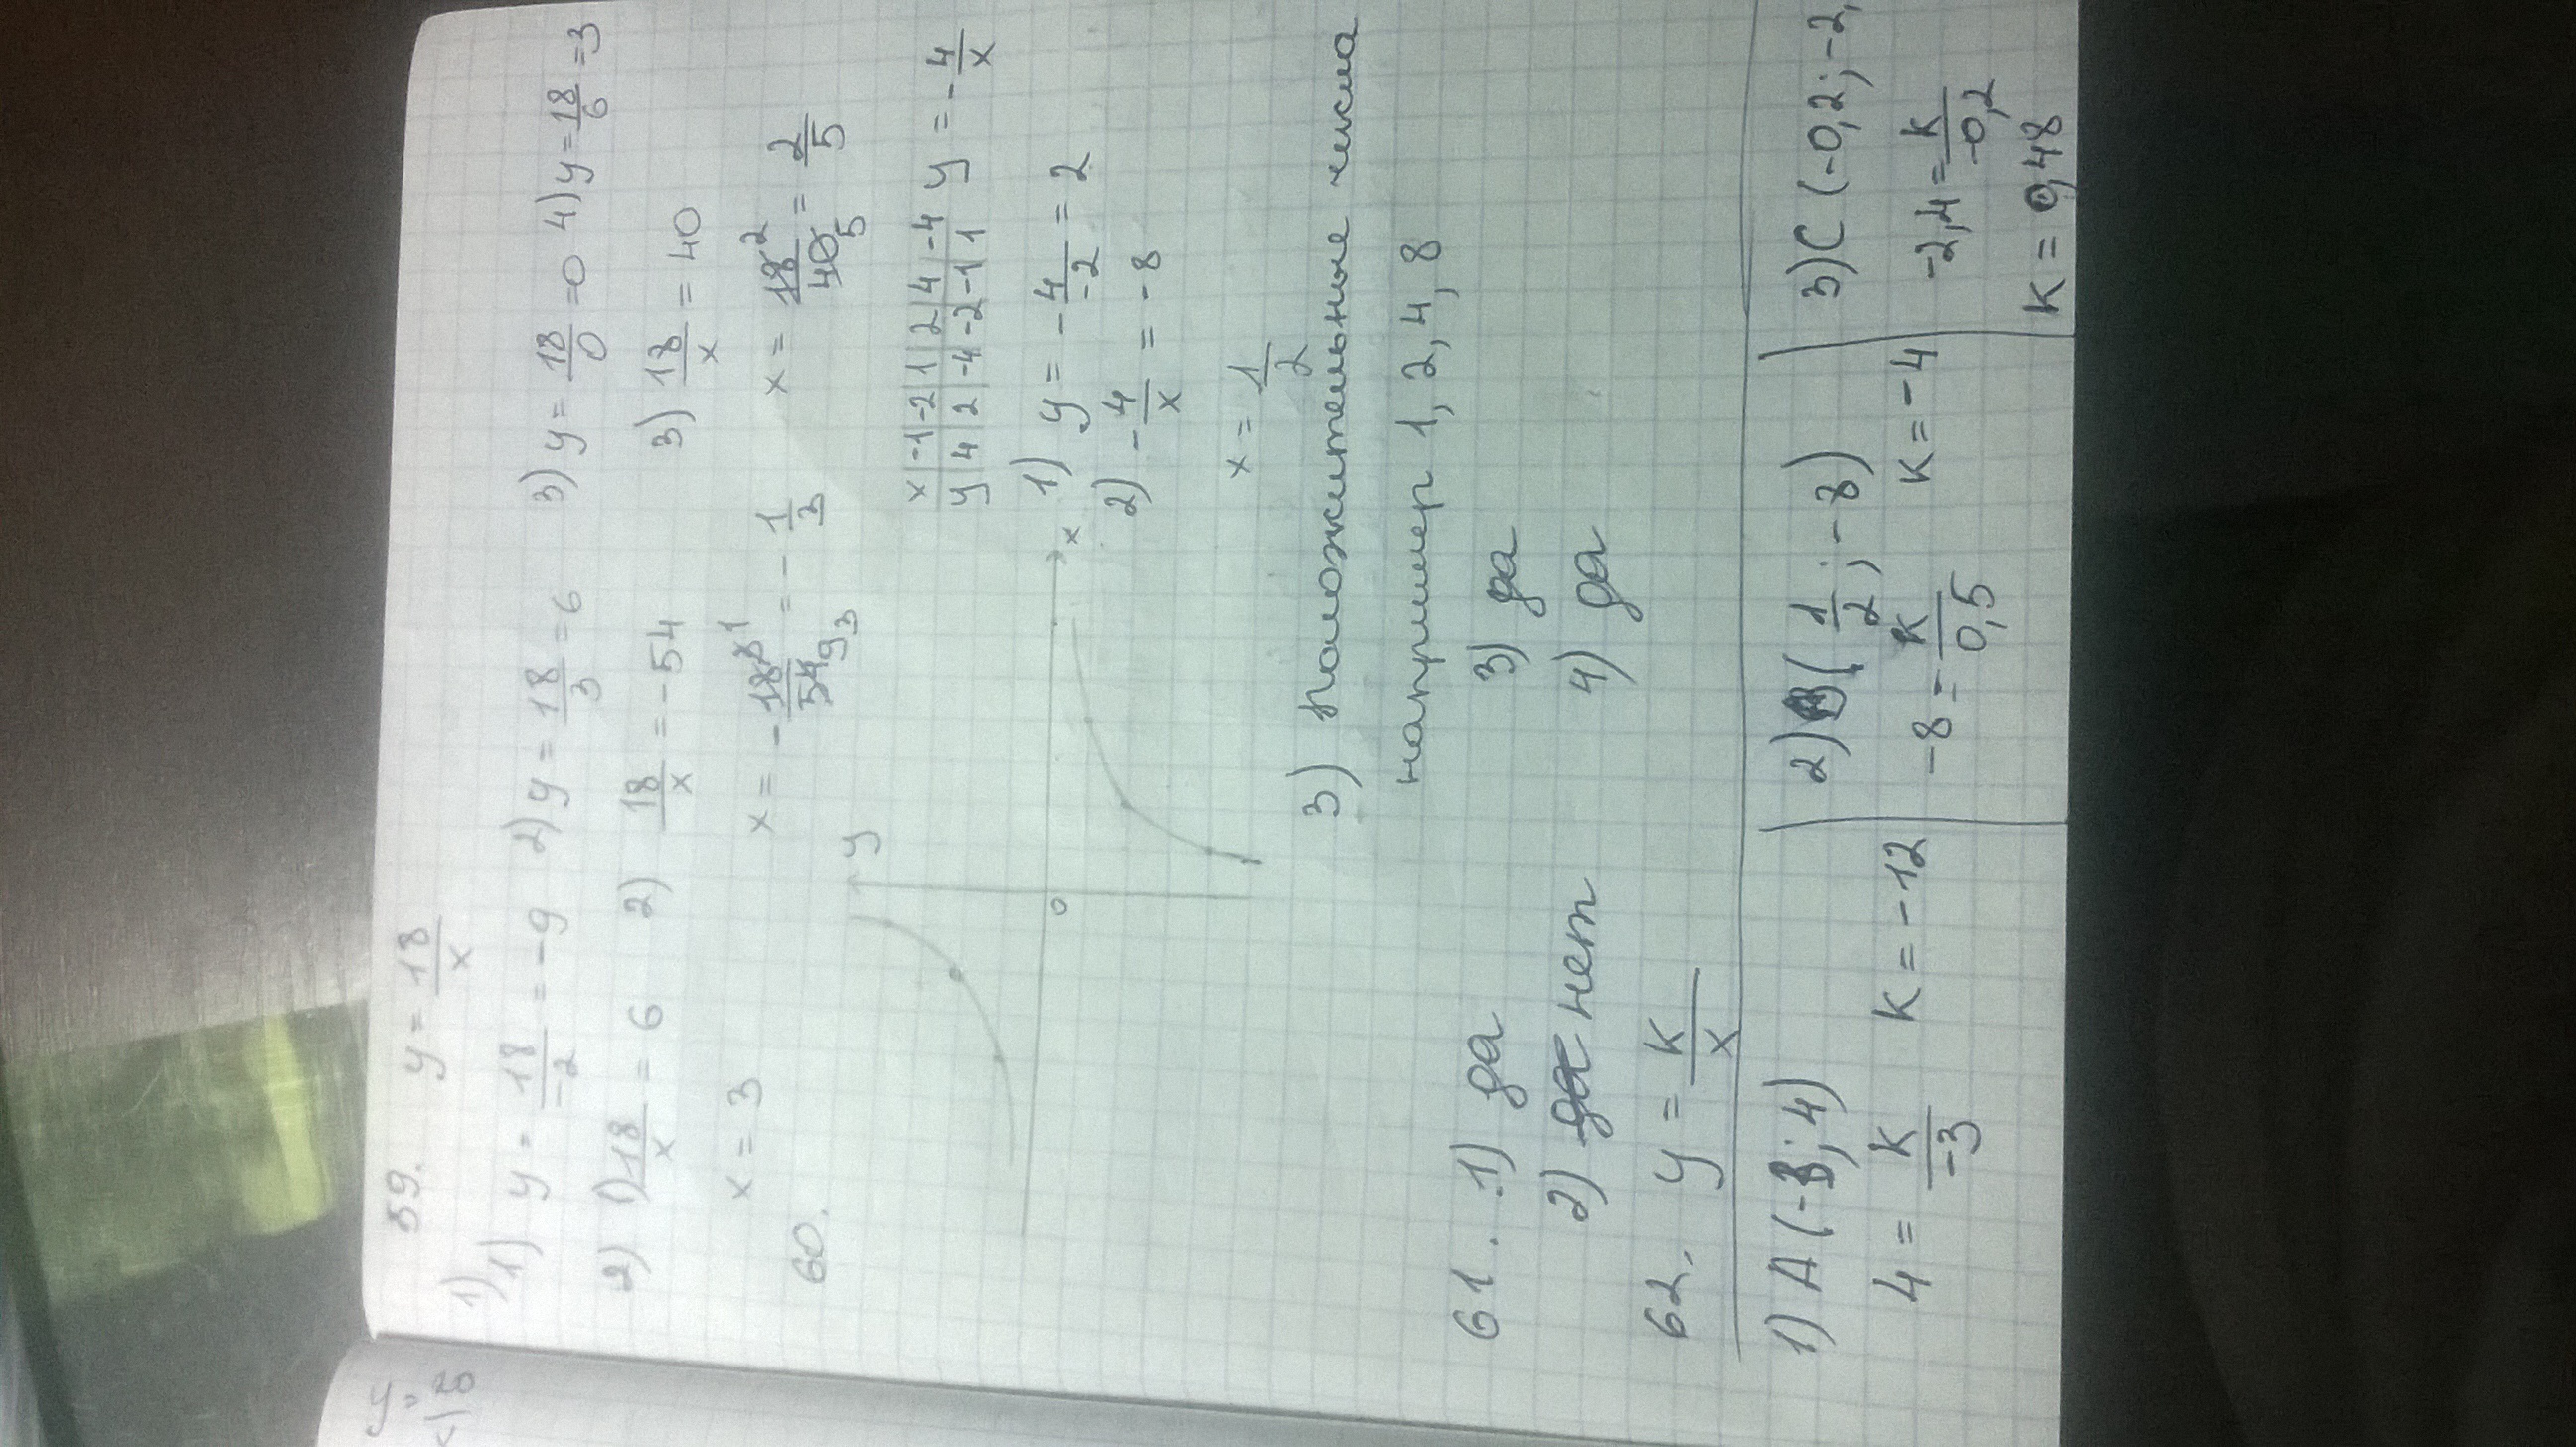 59. y = 18/x
1) 1) y = 18/-2 = -9 2) y = 18/3 = 6 3) y = 18/0 = 0 4) y = 18/6 = 3
2) 1) 18/x = 6 2) 18/x = -54 3) 18/x = 40
x = 3 x = -18/54 = -1/3 x = 18/40 = 2/5
60. y
x | -1 | -2 | 1 | 2 | 4 | -4 y = -4/x
y | 4 | 2 | -4 | -2 | -1 | 1
0 x
1) y = -4/-2 = 2
2) -4/x = -8
x = 1/2
3) Положительные числа
например 1, 2, 4, 8
61. 1) да 3) да
2) нет 4) да
62. y = k/x
1) A (-3; 4) 2) B (1/2; -8) 3) C (-0,2; -2,
4 = k/-3 k = -12 -8 = k/0,5 k = -4 -2,4 = k/-0,2
k = 0,48